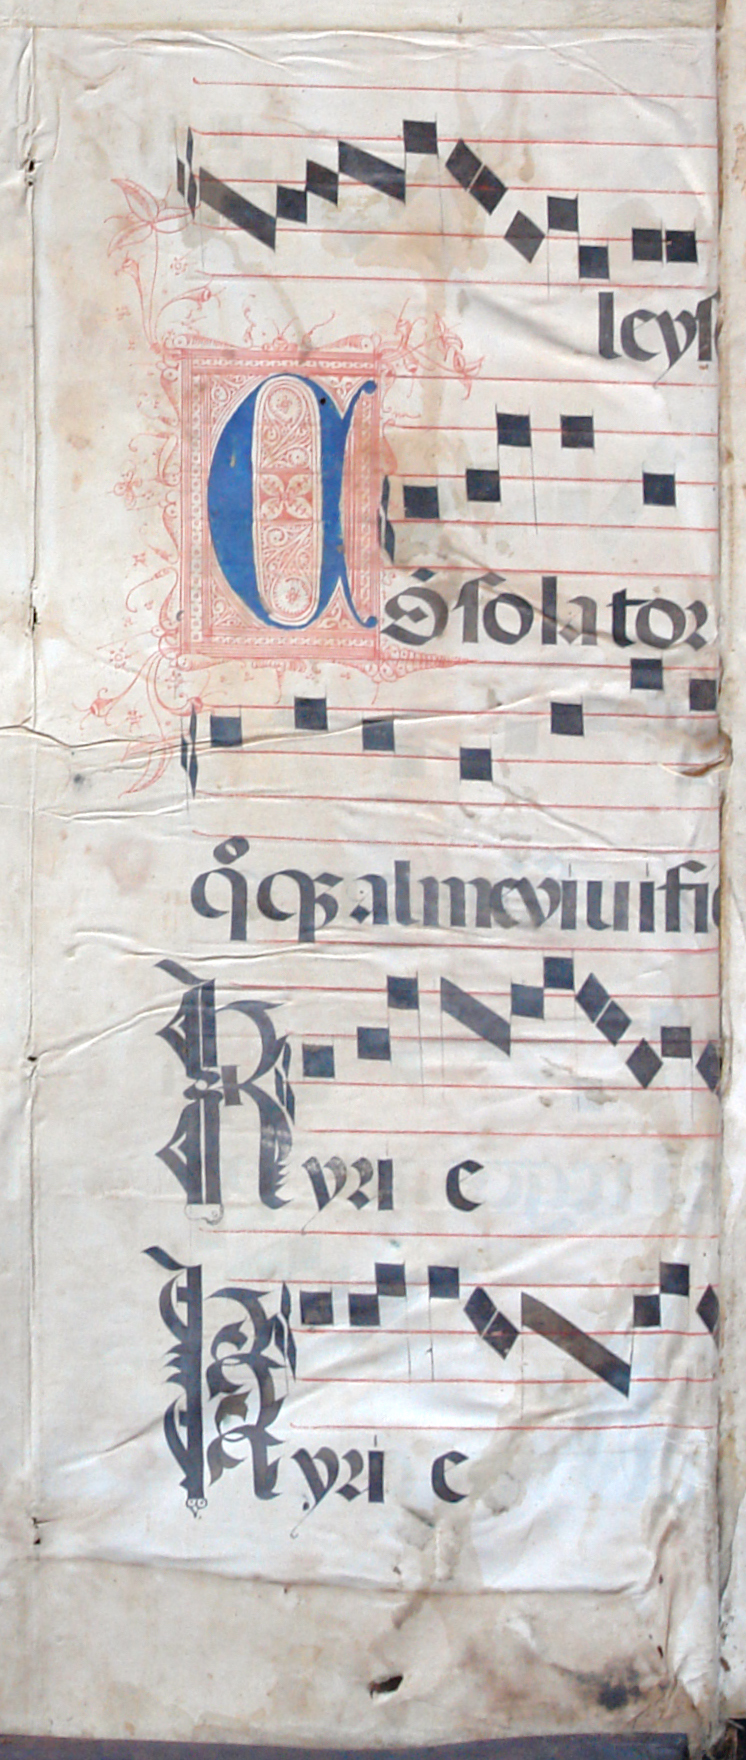 leyſ
Cōſolator
qͦqꝫ alme viuifi
Kyri e
Kyri e